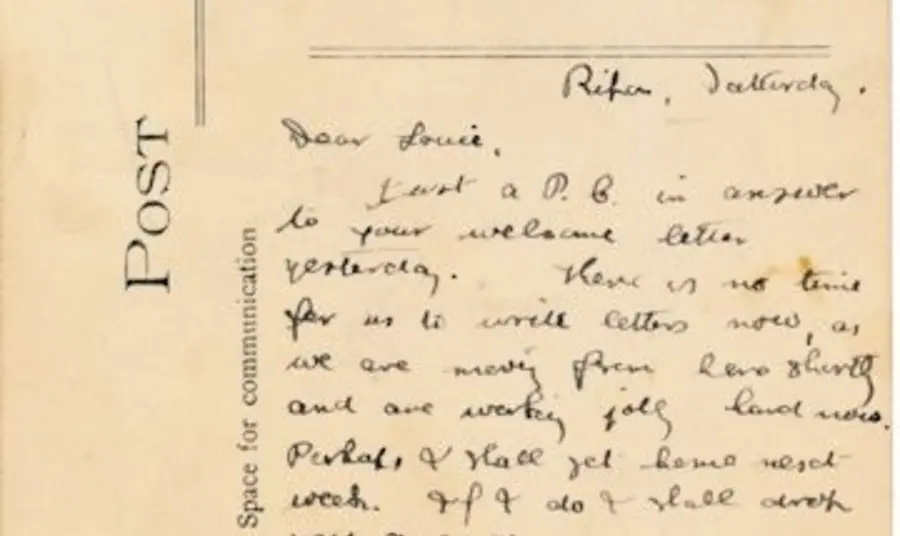 POST
Space for communication
Ripon, Saturday.
Dear Louie,
Just a P.C. in answer
to your welcome letter
yesterday. There is no time
for us to write letters now, as
we are moving from here shortly
and are working jolly hard now.
Perhaps I shall get home next
week. If I do I shall drop